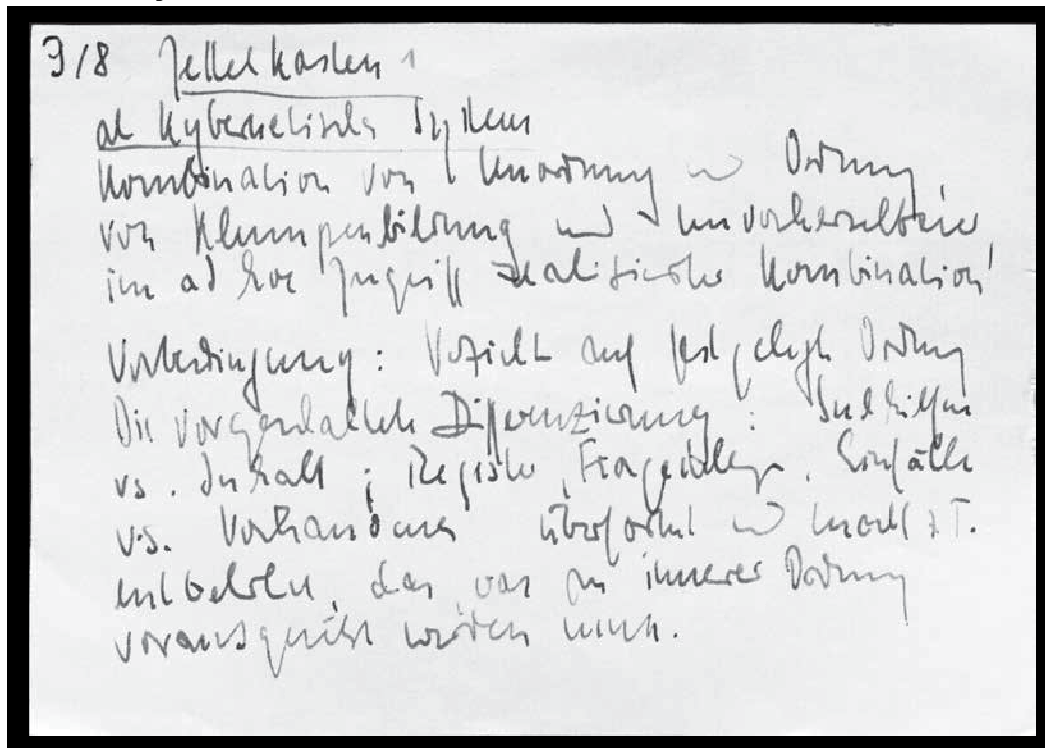 9/8 Zettelkasten
als kybernetisches System
Kombination von Unordnung und Ordnung,
von Klumpenbildung und unvorhersehbarer
im ad hoc Zugriff realisierter Kombination
Vorbedingung: Verzicht auf festgelegte Ordnung
Die vorgeschaltete Differenzierung: Suchhilfen
vs. Inhalt; Register, Fragestellungen, Einfälle
vs. Vorhandenes überformt und macht z.T.
entbehrlich, das, was an innerer Ordnung
vorausgesetzt werden muß.